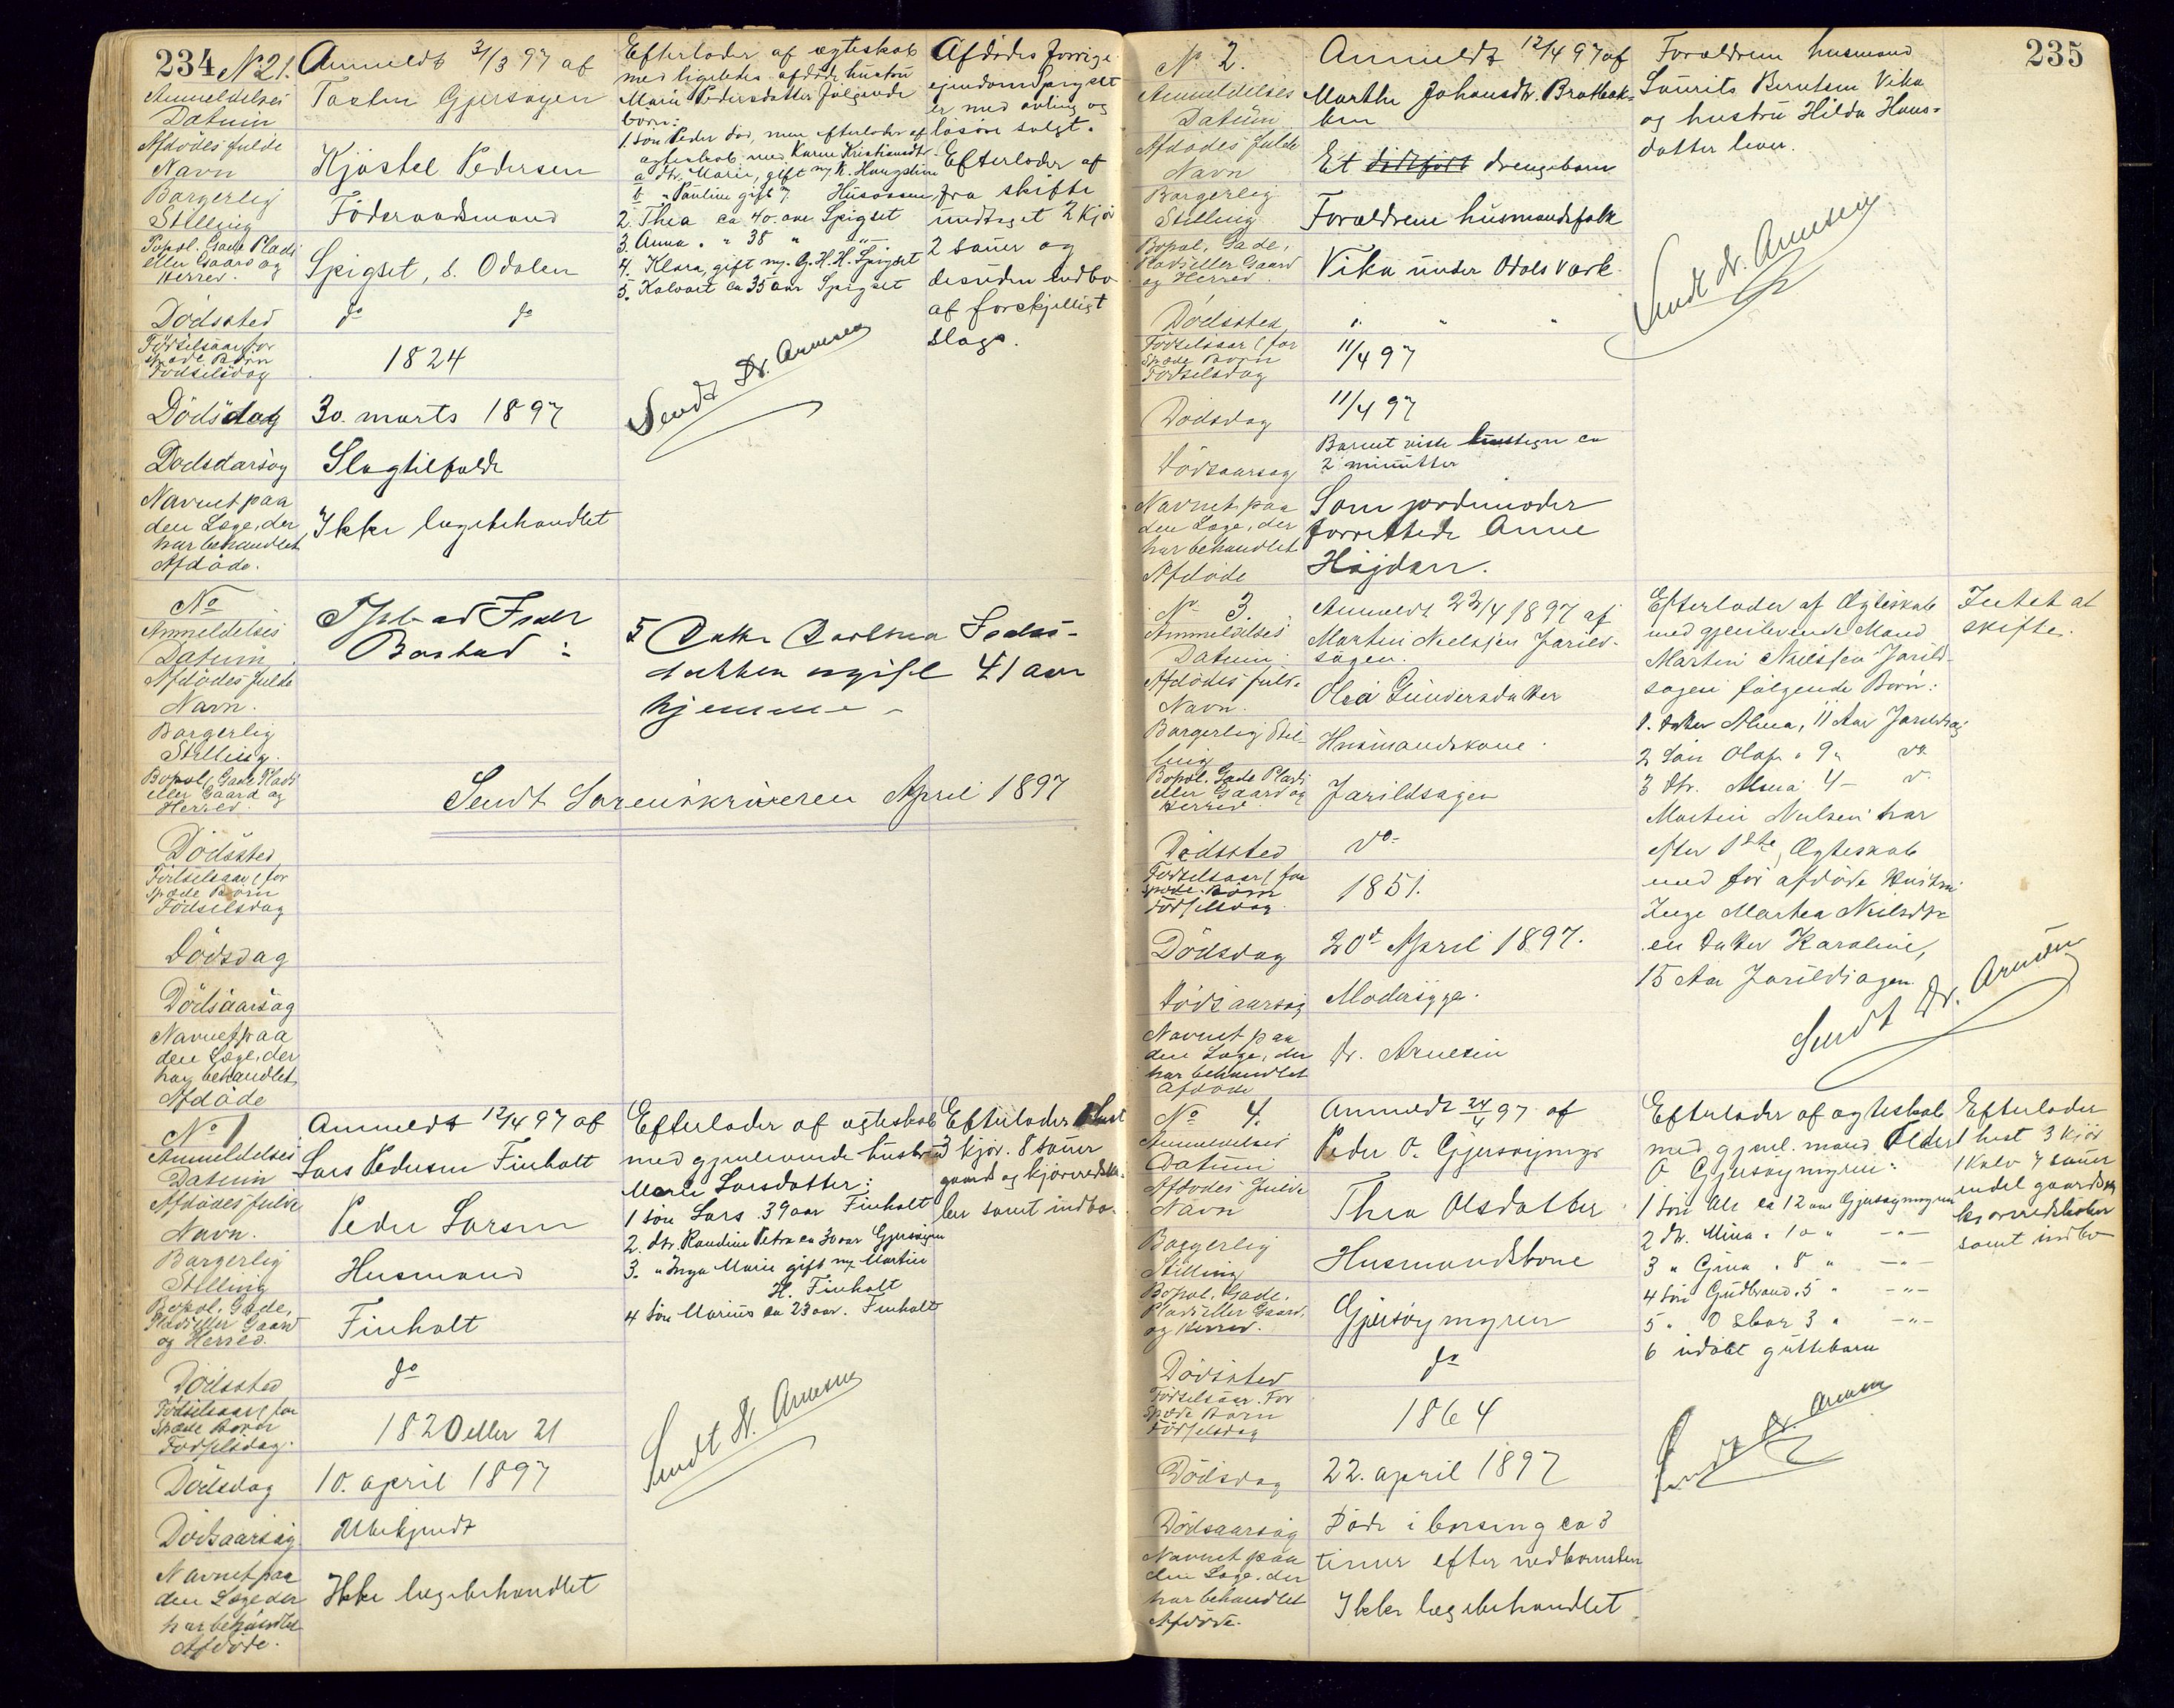 234 No 21.
Anmeldelses Datum
Anmeldt 31/3 97 af
Tosten Gjersøyen
Afdødes fulde Navn
Kjøstel Pedersen
Borgerlig Stilling
Föderaadsmand
Bopæl. Gade Plads eller Gaard og Herred.
Spigset, S. Odalen
Dödssted
do do
Födselsaar for spæde Börn Födselsdag
1824
Dödsdag
30. marts 1897
Dødsaarsag
Slagtilfælde
Navnet paa den Læge, der har behandlet Afdøde.
Ikke lægebehandlet
Efterlader af ægteskab
med ligeledes afdøde hustru
Marie Pedersdatter følgende
børn:
1. søn Peder død, men efterlader af
ægteskab med Karen Kristiansdtr
a dtr. Marie, gift m/ K. Haugstun
b " Pauline gift m/ Husaasen
2. Thea ca 40. aar Spigset
3. Anna " " 38 " "
4. Klara, gift m. G. H. H. Spigset
5. Kalvart ca 35 aar Spigset
Sendt Dr. Arnesen
Afdødes forrige
ejendom Spigset
er med avling og
løsøre solgt.
Efterlader af
fra skifte
undtaget 2 kjør
2 sauer og
desuden indbo
af forskjelligt
slags.
No
Anmeldelses Datum
Afdødes fulde Navn.
Borgerlig Stilling.
Bopæl, Gade Plads eller Gaard og Herred
Dödssted
Födselsaar (for spæde Börn Födselsdag
Dödsdag
Dödsaarsag
Navnet paa den Læge, der har behandlet Afdöde
Bostad :
5 Datter
datter ugift 41 aar
hjemme -
Sendt Sorenskriveren April 1897
No 1
Anmeldelses Datum
Anmeldt 12/4 97 af
Lars Pedersen Finholt
Afdødes fulde Navn.
Peder Larsen
Borgerlig Stilling
Husmand
Bopæl, Gade, Plads eller Gaard og Herred.
Finholt
Dödssted
do
Födselsaar (for Spæde Börn Födselsdag.
1820 eller 21
Dödsdag
10. april 1897
Dödsaarsag
Ubekjendt
Navnet paa den Læge der har behandlet Afdöde.
Ikke lægebehandlet
Efterlader af ægteskab
med gjenlevende hustru
Marte Larsdatter:
1 søn Lars 39 aar Finholt
2. dtr. Randine Petra ca 30 aar Gjersøyen
3. " Inga Marie gift m/ Martin
H. Finholt
4 søn Marius ca 23 aar. Finholt
Sendt Dr. Arnesen
Efterlader 1 hest
3 kjør. 8 sauer
gaards og kjøreredska-
ber samt indbo.
235
No 2.
Anmeldelses Datum
Anmeldt 12/4 97 af
Marthe Johansdtr. Bratbak-
ken
Afdödes fulde Navn
Et dödfödt drengebarn
Borgerlig Stilling
Forældrene husmandsfolk
Bopæl, Gade, Plads eller Gaard og Herred
Vika under Odals værk.
Dödssted
" " "
Födselsaar (for Spæde Börn Födselsdag
11/4 97
Dödsdag
11/4 97
Dödsaarsag
Barnet viste livstegn ca
2 minutter
Navnet paa den Læge, der har behandlet Afdöde
Som jordmoder
forrettede Anne
Højden.
Forældrene husmand
Laurits Berntsen Vika
og hustru Hilda Hans-
datter lever.
Sendt dr. Arnesen
No 3.
Anmeldelses Datum
Anmeldt 22/4 1897 af
Martin Nielssen Jarild-
sagen.
Afdödes fulde Navn.
Olea Gundersdatter
Borgerlig Stil-
ling
Husmandskone.
Bopæl. Gade Plads eller Gaard og Herred
Jarildsagen
Dödssted
do-
Födselsaar (for spæde Börn Födselsdag
1851.
Dödsdag
20de April 1897.
Dödsaarsag
Modersyge.
Navnet paa den Læge, der har behandlet Afdöde
Dr. Arnesen
Efterlader af Ægteskab
med gjenlevende Mand
Martin Nielssen Jarild-
sagen følgende Börn:
1. Datter Alma, 11 Aar Jarildsag
2 Sön Olaf " 9 " do.
3 Dtr. 4 - do
Martin Nielsen har
efter 1ste Ægteskab
med før afdøde Hustru
Inge Martea Nielsdtr
en Datter Karoline,
15 Aar Jarildsagen
Sendt Dr. Arnesen
Intet at
skifte.
No 4.
Anmeldelses Datum
Anmeldt 24/4 97 af
Peder O. Gjersøymyr
Afdödes fulde Navn
Thea Olsdatter
Borgerlig Stilling
Husmandskone
Bopæl. Gade. Plads eller Gaard, og Herred.
Gjersøymyren
Dödssted
do
Födselsaar. For Spæde Börn Födselsdag
1864
Dödsdag
22. april 1897
Dödsaarsag
Døde i barseng ca 3
timer efter nedkomsten
Navnet paa den Læge. der har behandlet Afdöde.
Ikke lægebehandlet
Efterlader af ægteskab
med gjenl. mand Peder
O Gjersøymyren:
1 søn Ole ca 12 aar Gjersøymyren
2 dtr. Mina " 10 " - " -
3 " Gina " 8 " - " -
4 søn Gudbrand " 5 " - " -
5 " Oskar 3 " - " -
6 udøbt guttebarn
Sendt Dr. Arnesen
Efterlader
1 hest 3 kjør
1 kalv 7 sauer
endel gaards og
kjøreredskaber
samt indbo